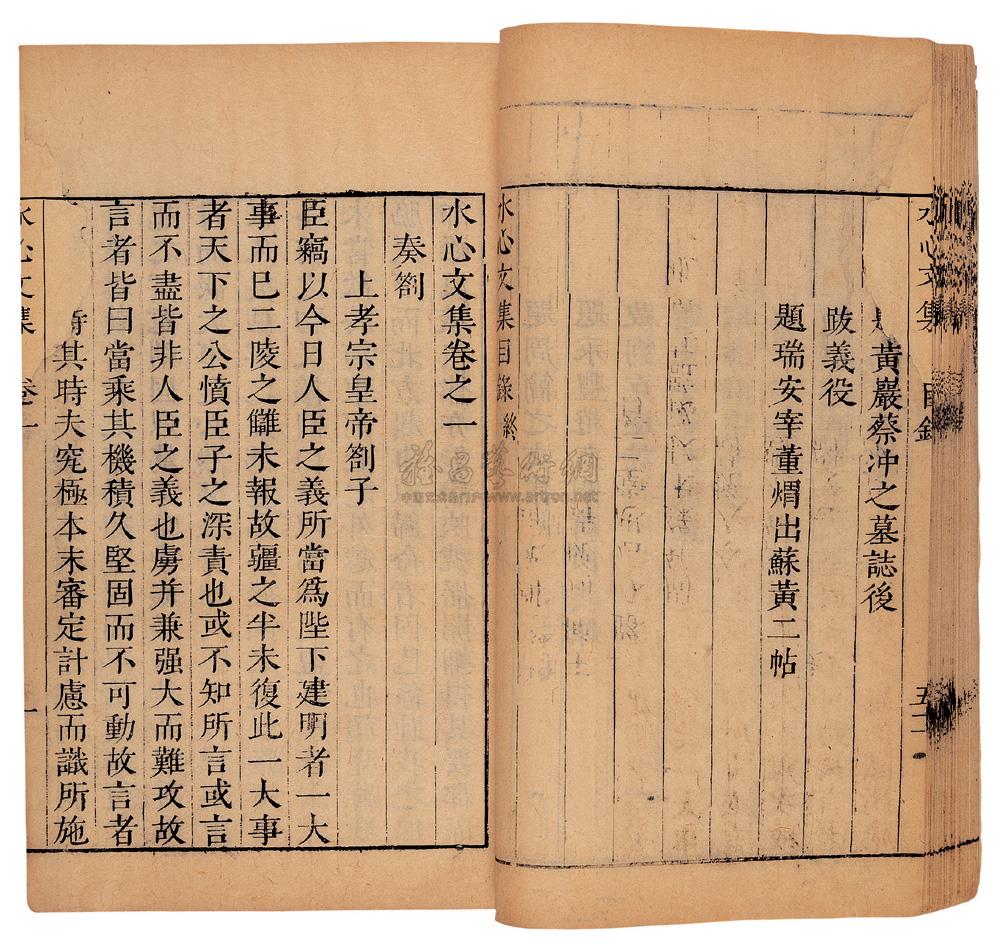 水心文集 目錄
黃巖蔡沖之墓誌後
跋義役
題瑞安宰董煟出蘇黃二帖
水心文集目錄終
水心文集卷之一
奏劄
上孝宗皇帝劄子
臣竊以今日人臣之義所當爲陛下建明者一大
事而已二陵之讎未報故疆之半未復此一大事
者天下之公憤臣子之深責也或不知所言或言
而不盡皆非人臣之義也虜并兼强大而難攻故
言者皆曰當乘其機積久堅固而不可動故言者
其時夫究極本末審定計慮而識所施
水心文集 卷一 一
www.artron.net